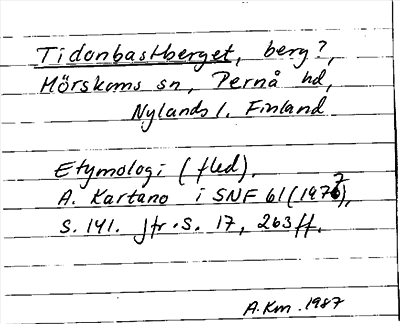 Tidonbastberget, berg?,
Mörskoms sn, Pernå hd,
Nylands l. Finland
Etymologi (fled).
A. Kartano i SNF 61 (1977),
s. 141. Jfr. s. 17, 263 ff.
A.Km. 1987